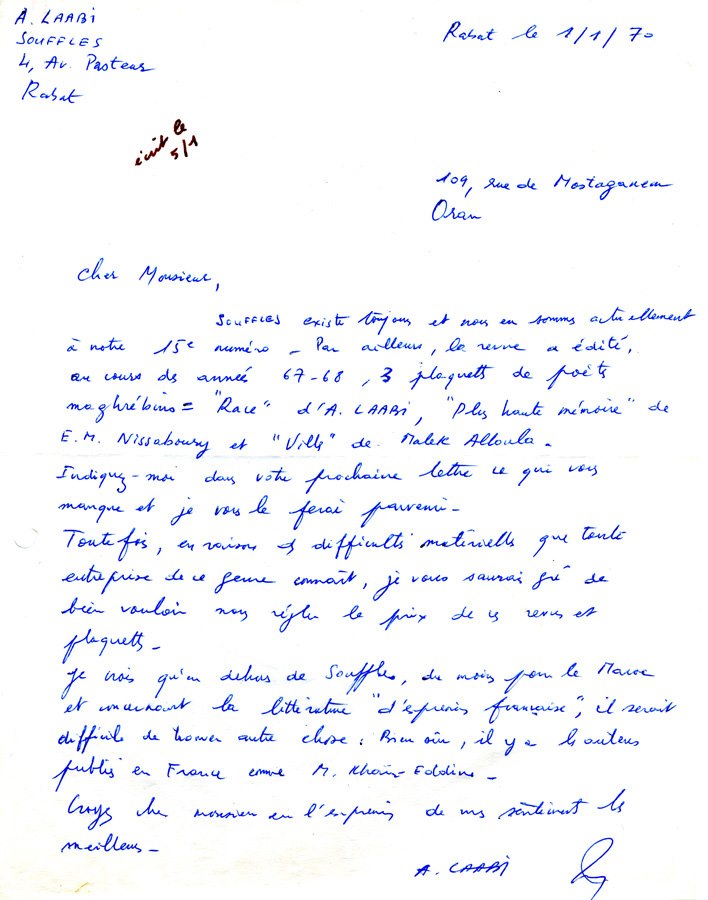 A. LAABI
SOUFFLES
4, Av. Pasteur
Rabat
Rabat le 1/1/70
écrit le
5/1
109, rue de Mostaganem
Oran
Cher Monsieur,
SOUFFLES existe toujours et nous en sommes actuellement
à notre 15e numéro – Par ailleurs, la revue a édité,
au cours des années 67-68, 3 plaquettes de poètes
maghrébins = "Race" d'A. LAABI, "Plus haute mémoire" de
E.M. Nissaboury et "Villes" de Malek Alloula –
Indiquez-moi dans votre prochaine lettre ce qui vous
manque et je vous le ferai parvenir –
Toutefois, en raison des difficultés matérielles que toute
entreprise de ce genre connaît, je vous saurais gré de
bien vouloir nous régler le prix de ces revues et
plaquettes –
Je crois qu'en dehors de Souffles, du moins pour le Maroc
et concernant la littérature "d'expression française", il serait
difficile de trouver autre chose. Bien sûr, il y a les auteurs
publiés en France comme M. Khaïr-Eddine –
Croyez cher monsieur en l'expression de mes sentiments les
meilleurs –
A. LAABI